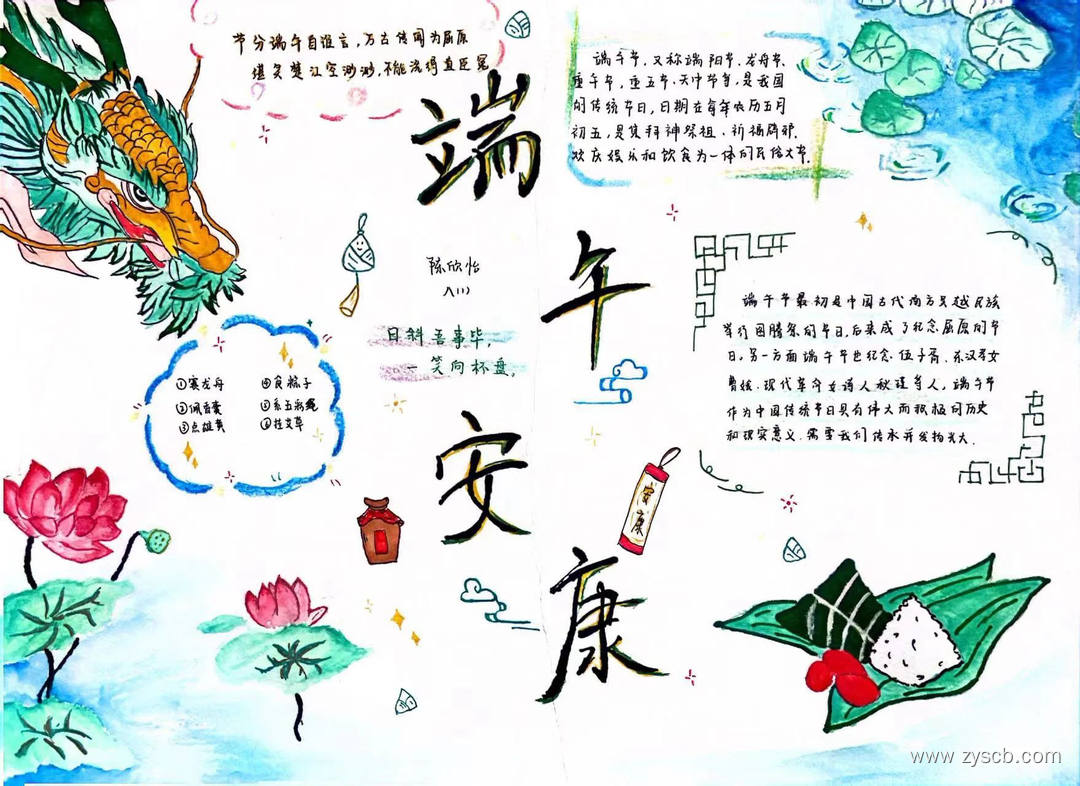 节分端午自谁言，万古传闻为屈原
堪笑楚江空渺渺，不能洗得直臣冤
端午安康
端午节，又称端阳节、龙舟节、
重午节，重五节、天中节等，是我国
的传统节日，日期在每年农历五月
初五，是集拜神祭祖、祈福辟邪、
欢庆娱乐和饮食为一体的民俗大节。
陈欣怡
八(1)
日斜吾事毕，
一笑向杯盘。
①赛龙舟 ④食粽子
②佩香囊 ⑤系五彩绳
③点雄黄 ⑥挂艾草
端午节最初是中国古代南方吴越民族
举行图腾祭的节日，后来成了纪念屈原的节
日，另一方面端午节也纪念伍子胥、东汉孝女
曹娥、现代革命女诗人秋瑾等人，端午节
作为中国传统节日具有伟大而积极的历史
和现实意义，需要我们传承并发扬光大。
安康
www.zyscb.com